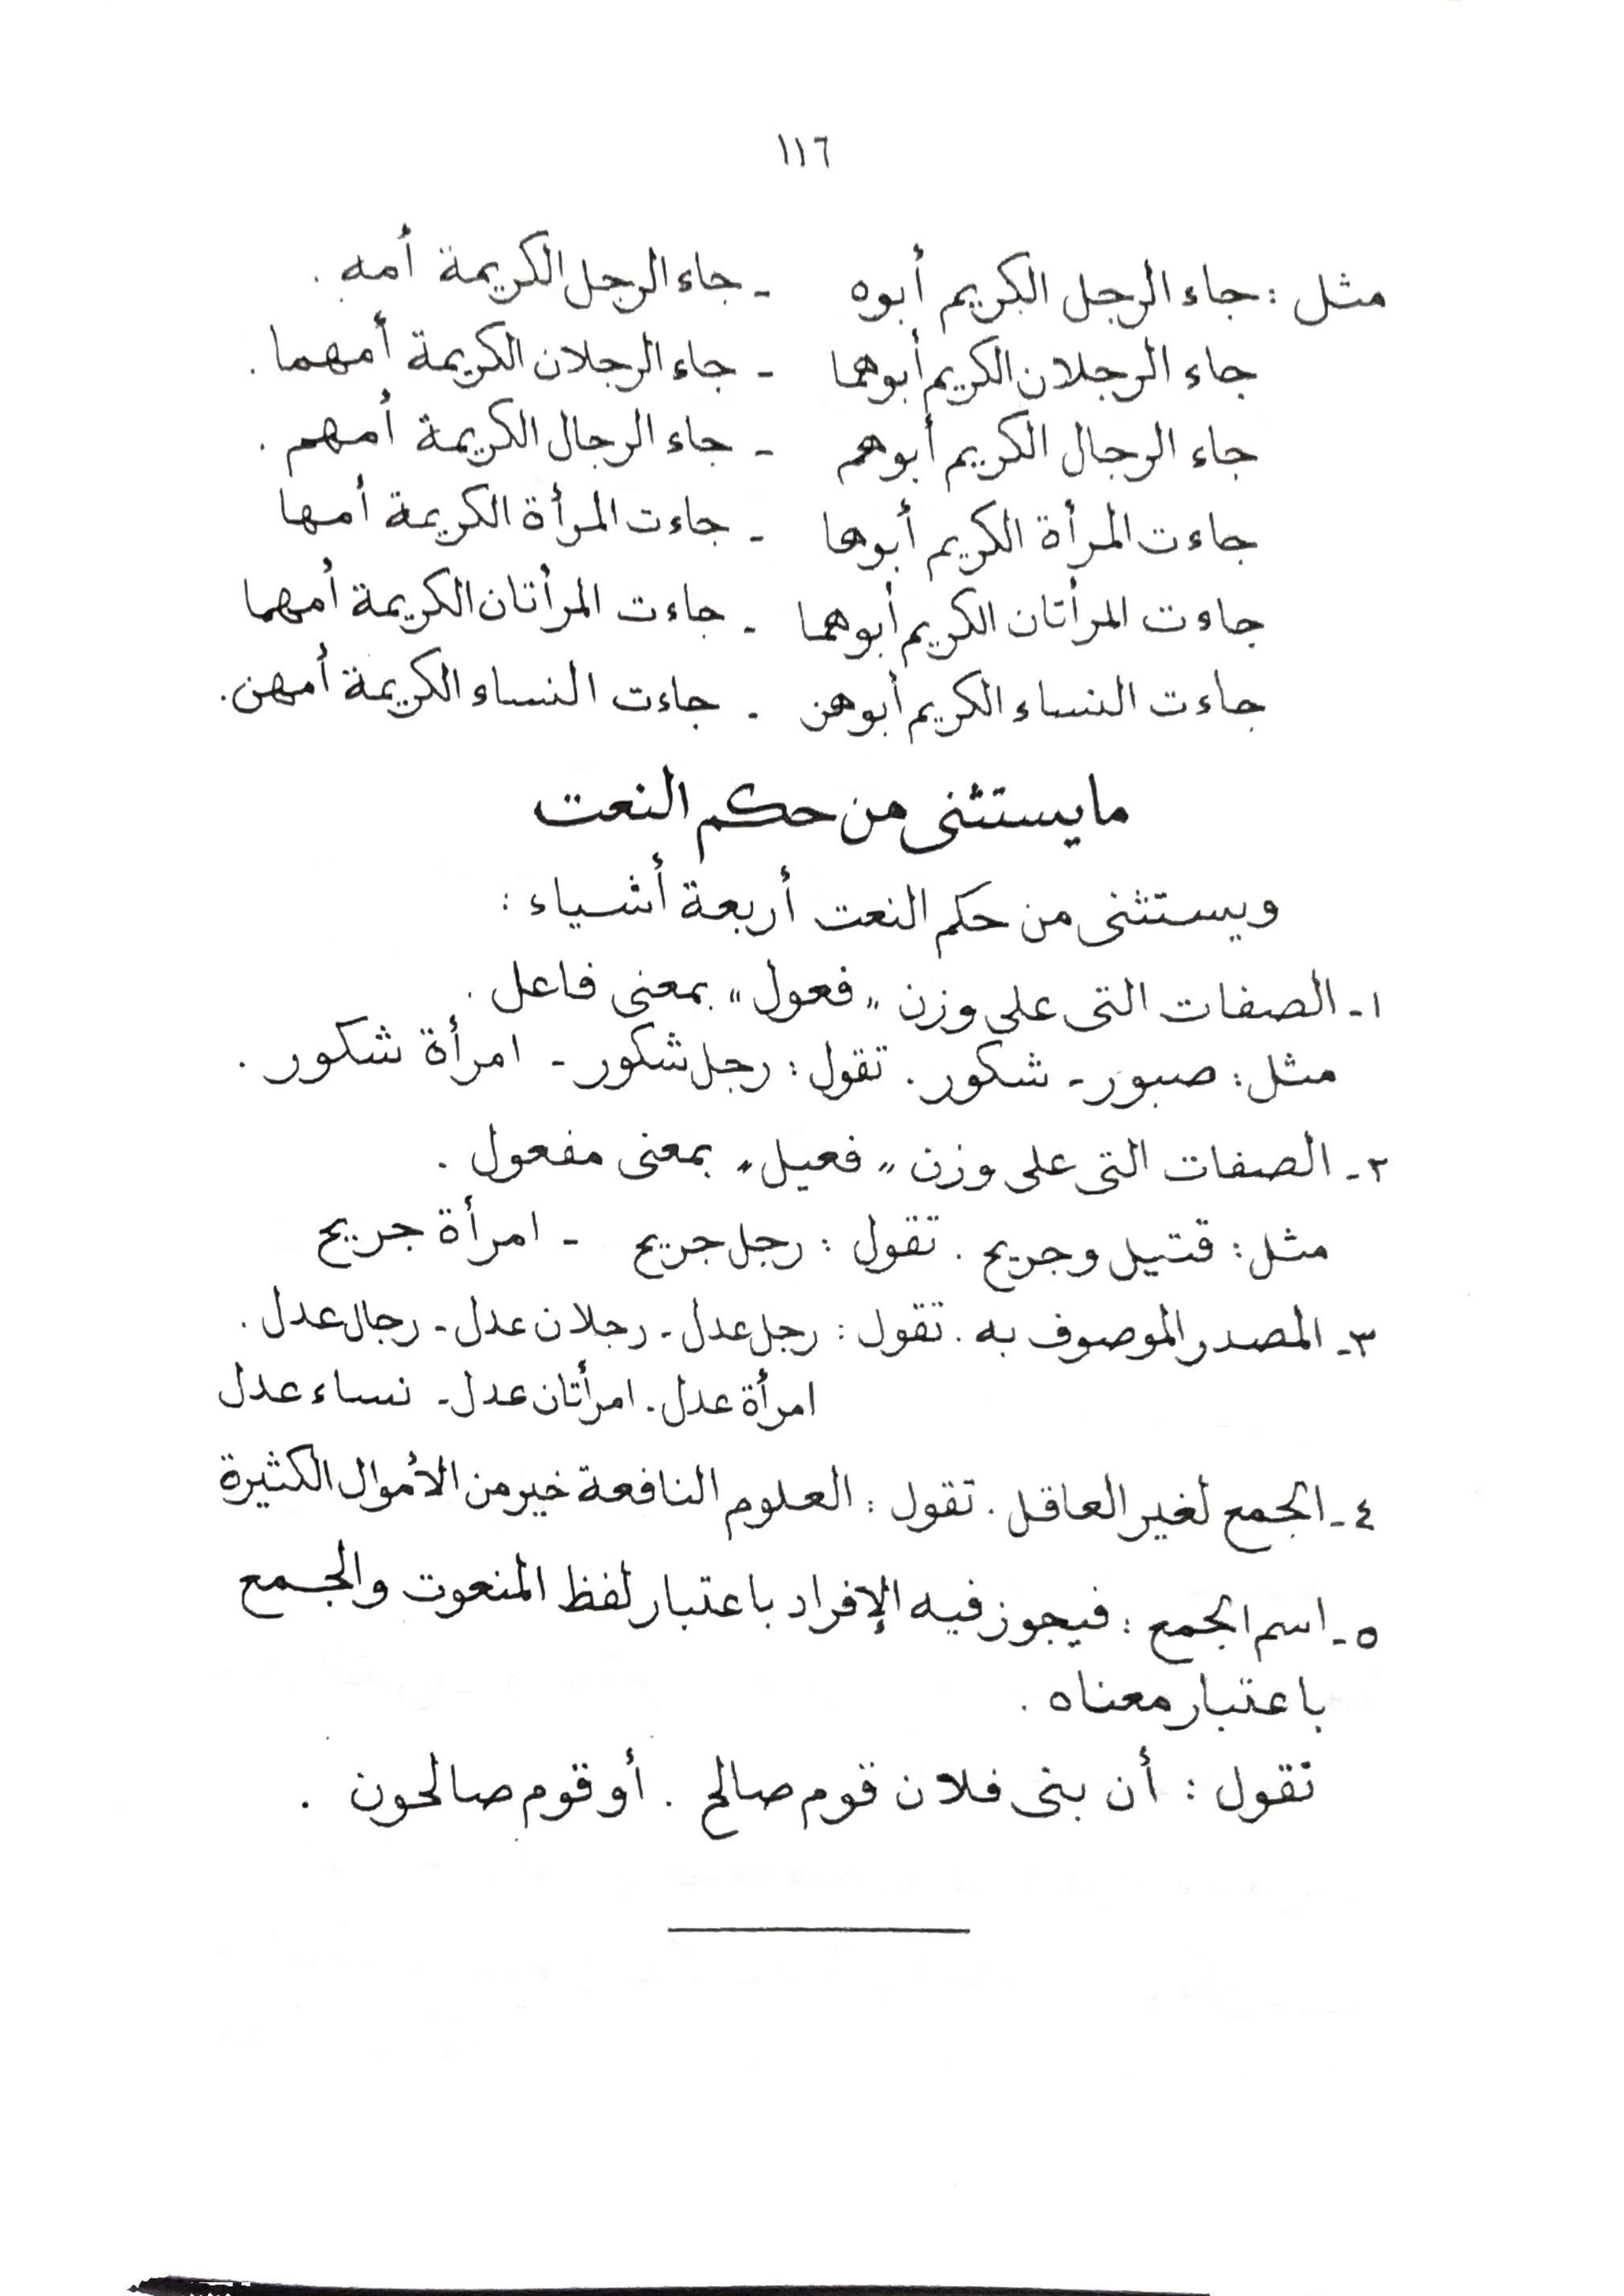 ١١٦
مثل : جاء الرجل الكريم أبوه - جاء الرجل الكريمة أمه .
جاء الرجلان الكريم أبوهما - جاء الرجلان الكريمة أمهما .
جاء الرجال الكريم أبوهم - جاء الرجال الكريمة أمهم .
جاءت المرأة الكريم أبوها - جاءت المرأة الكريمة أمها
جاءت المرأتان الكريم أبوهما - جاءت المرأتان الكريمة أمهما
جاءت النساء الكريم أبوهن - جاءت النساء الكريمة أمهن .
ما يستثنى من حكم النعت
ويستثنى من حكم النعت أربعة أشياء :
١- الصفات التى على وزن " فعول " بمعنى فاعل .
مثل : صبور - شكور . تقول : رجل شكور - امرأة شكور .
٢- الصفات التى على وزن " فعيل " بمعنى مفعول .
مثل : قتيل وجريح . تقول : رجل جريح - امرأة جريح
٣- المصدر الموصوف به . تقول : رجل عدل - رجلان عدل - رجال عدل .
امرأة عدل - امرأتان عدل - نساء عدل
٤- الجمع لغير العاقل . تقول : العلوم النافعة خير من الأموال الكثيرة
٥- اسم الجمع : فيجوز فيه الإفراد باعتبار لفظ المنعوت والجمع
باعتبار معناه .
تقول : أن بنى فلان قوم صالح . أو قوم صالحون .